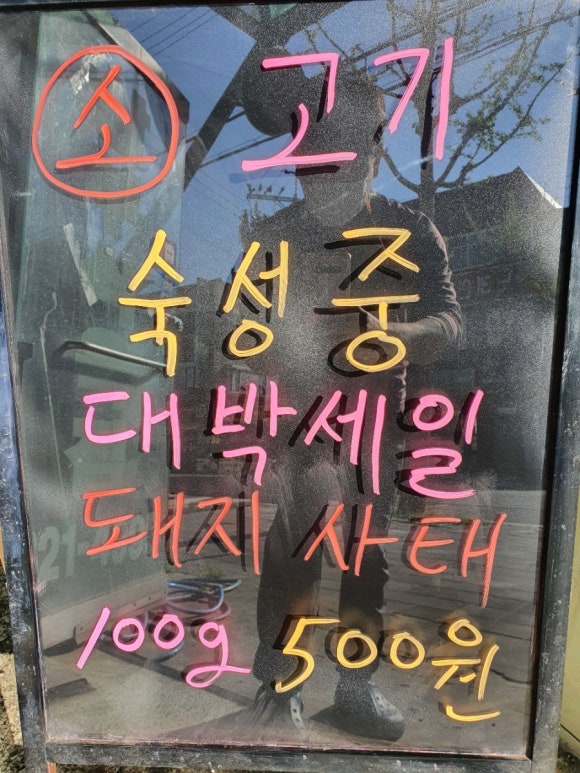 소 고기
숙성중
대박세일
돼지 사태
100g 500원